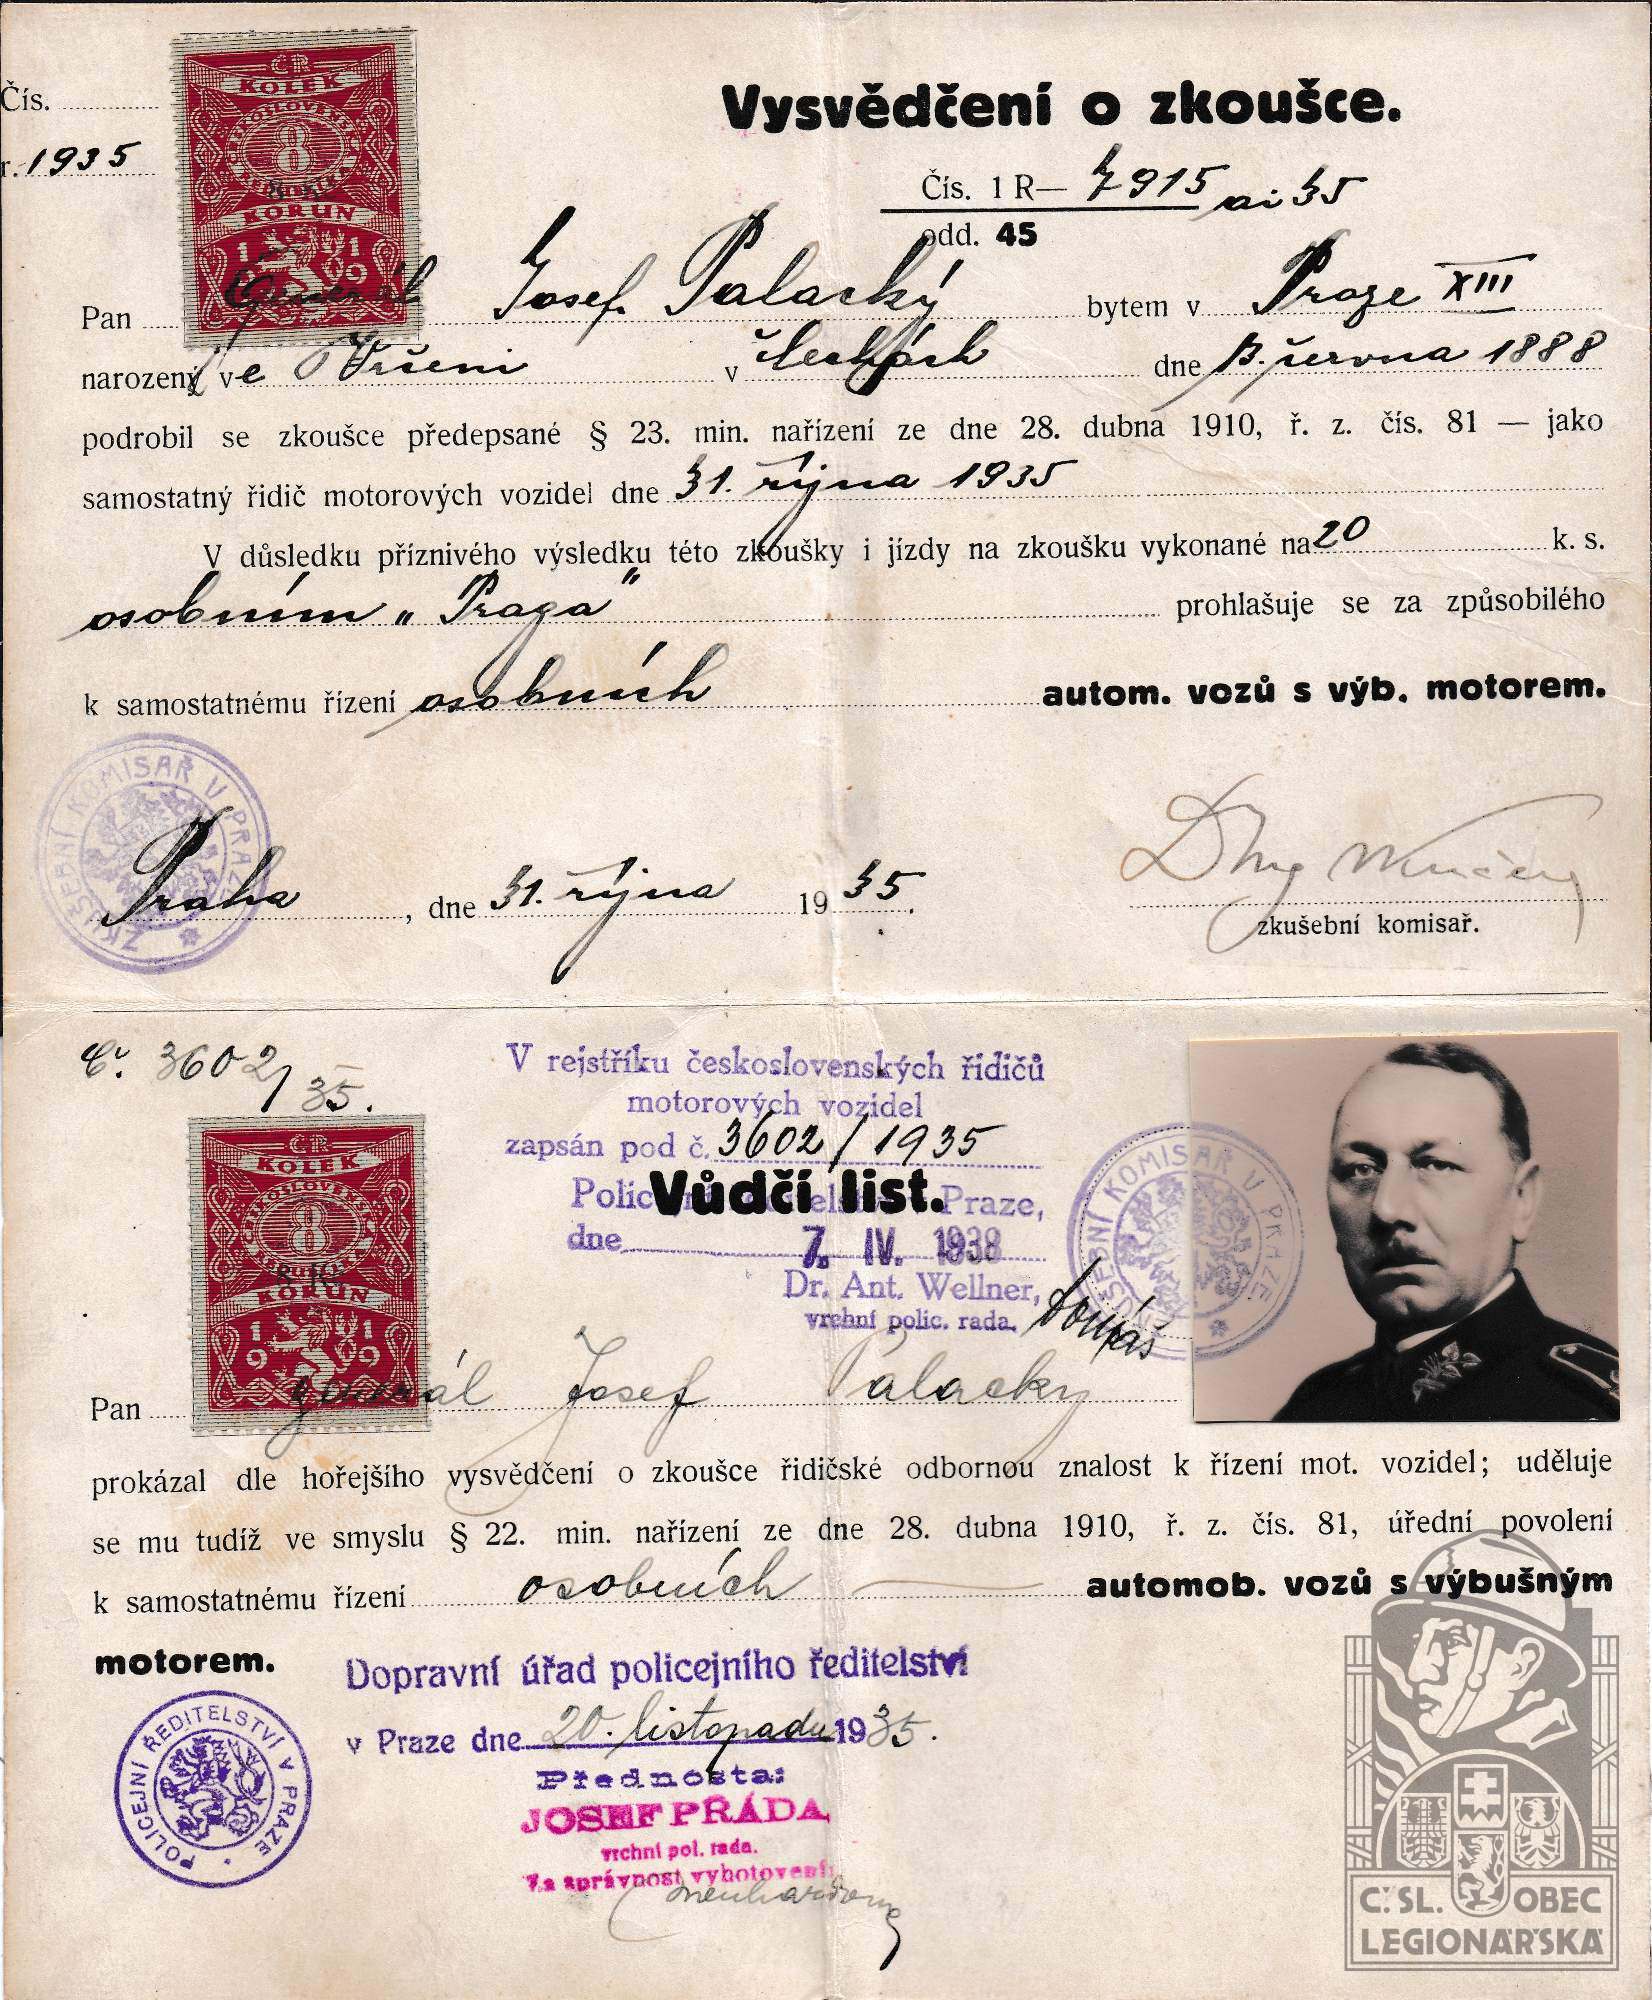 Vysvědčení o zkoušce.
Čís.
r. 1935
ČR
KOLEK
8
8 K
KORUN
1919
Čís. 1 R— 7915 ai 35
odd. 45
Pan Generál Josef Palacký bytem v Praze XIII
narozený ve Vršeni v Čechách dne 13. června 1888
podrobil se zkoušce předepsané § 23. min. nařízení ze dne 28. dubna 1910, ř. z. čís. 81 — jako
samostatný řidič motorových vozidel dne 31. října 1935
V důsledku příznivého výsledku této zkoušky i jízdy na zkoušku vykonané na 20 k. s.
osobním „Praga" prohlašuje se za způsobilého
k samostatnému řízení osobních autom. vozů s výb. motorem.
ZKUŠEBNÍ KOMISAŘ V PRAZE
Praha, dne 31. října 1935.
zkušební komisař.
Č. 3602/35.
V rejstříku československých řidičů
motorových vozidel
zapsán pod č. 3602/1935
Policejní ředitelství v Praze,
Vůdčí list.
dne 7. IV. 1938
Dr. Ant. Wellner,
vrchní polic. rada.
Tomáš
ZKUŠEBNÍ KOMISAŘ V PRAZE
ČR
KOLEK
8
8 K
KORUN
1919
Pan generál Josef Palacký
prokázal dle hořejšího vysvědčení o zkoušce řidičské odbornou znalost k řízení mot. vozidel; uděluje
se mu tudíž ve smyslu § 22. min. nařízení ze dne 28. dubna 1910, ř. z. čís. 81, úřední povolení
k samostatnému řízení osobních automob. vozů s výbušným
motorem.
Dopravní úřad policejního ředitelství
v Praze dne 20. listopadu 1935.
Přednosta:
JOSEF PŘÁDA
vrchní pol. rada.
Za správnost vyhotovení:
POLICEJNÍ ŘEDITELSTVÍ V PRAZE
Č.SL. OBEC
LEGIONÁŘSKÁ